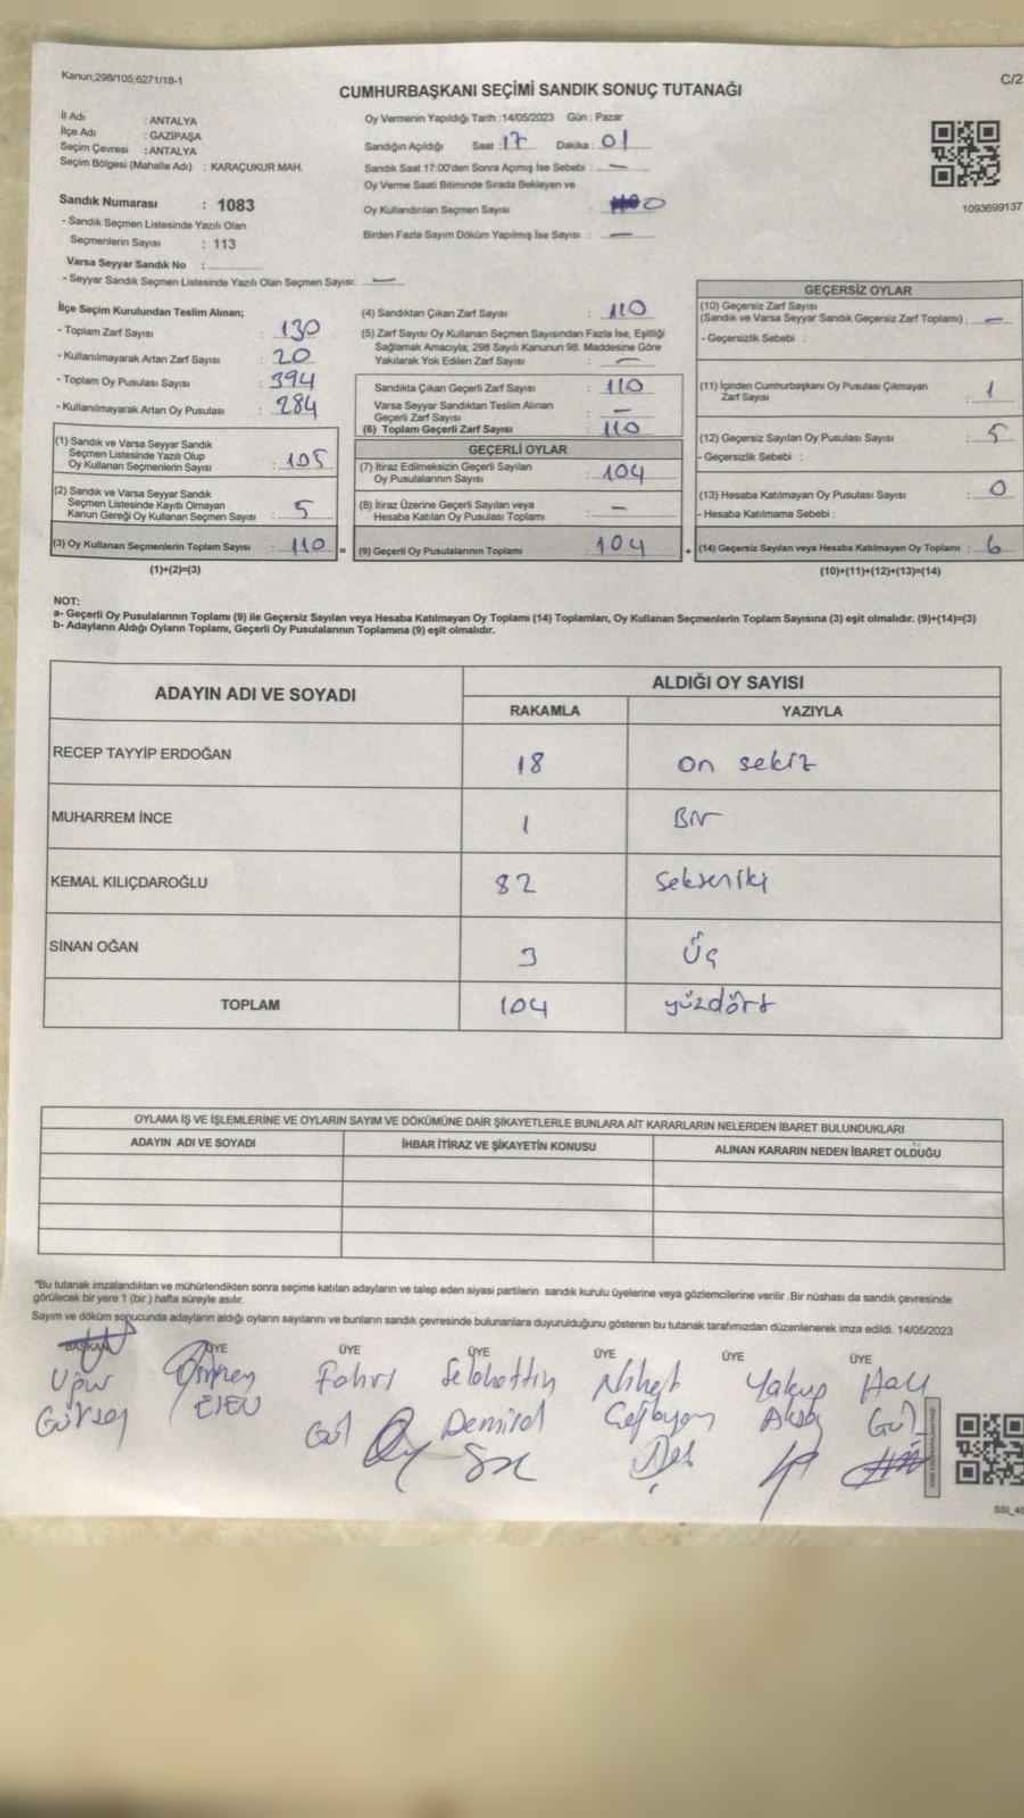 Kanun;298/105;6271/18-1
C/2
CUMHURBAŞKANI SEÇİMİ SANDIK SONUÇ TUTANAĞI
İl Adı : ANTALYA
İlçe Adı : GAZİPAŞA
Seçim Çevresi : ANTALYA
Seçim Bölgesi (Mahalle Adı) : KARAÇUKUR MAH.
Sandık Numarası : 1083
- Sandık Seçmen Listesinde Yazılı Olan
Seçmenlerin Sayısı : 113
Varsa Seyyar Sandık No :
- Seyyar Sandık Seçmen Listesinde Yazılı Olan Seçmen Sayısı: —
Oy Vermenin Yapıldığı Tarih :14/05/2023 Gün : Pazar
Sandığın Açıldığı Saat : 17 Dakika : 01
Sandık Saat 17:00'den Sonra Açılmış İse Sebebi : —
Oy Verme Saati Bitiminde Sırada Bekleyen ve
Oy Kullandırılan Seçmen Sayısı 0
Birden Fazla Sayım Döküm Yapılmış İse Sayısı : —
1093699137
İlçe Seçim Kurulundan Teslim Alınan;
- Toplam Zarf Sayısı : 130
- Kullanılmayarak Artan Zarf Sayısı : 20
- Toplam Oy Pusulası Sayısı : 394
- Kullanılmayarak Artan Oy Pusulası : 284
(1) Sandık ve Varsa Seyyar Sandık
Seçmen Listesinde Yazılı Olup
Oy Kullanan Seçmenlerin Sayısı : 105
(2) Sandık ve Varsa Seyyar Sandık
Seçmen Listesinde Kayıtlı Olmayan
Kanun Gereği Oy Kullanan Seçmen Sayısı : 5
(3) Oy Kullanan Seçmenlerin Toplam Sayısı : 110 =
(1)+(2)=(3)
(4) Sandıktan Çıkan Zarf Sayısı : 110
(5) Zarf Sayısı Oy Kullanan Seçmen Sayısından Fazla İse, Eşitliği
Sağlamak Amacıyla, 298 Sayılı Kanunun 98. Maddesine Göre
Yakılarak Yok Edilen Zarf Sayısı : —
Sandıkta Çıkan Geçerli Zarf Sayısı : 110
Varsa Seyyar Sandıktan Teslim Alınan
Geçerli Zarf Sayısı : —
(6) Toplam Geçerli Zarf Sayısı : 110
GEÇERLİ OYLAR
(7) İtiraz Edilmeksizin Geçerli Sayılan
Oy Pusulalarının Sayısı : 104
(8) İtiraz Üzerine Geçerli Sayılan veya
Hesaba Katılan Oy Pusulası Toplamı : —
(9) Geçerli Oy Pusulalarının Toplamı : 104 +
GEÇERSİZ OYLAR
(10) Geçersiz Zarf Sayısı
(Sandık ve Varsa Seyyar Sandık Geçersiz Zarf Toplamı) : —
- Geçersizlik Sebebi :
(11) İçinden Cumhurbaşkanı Oy Pusulası Çıkmayan
Zarf Sayısı : 1
(12) Geçersiz Sayılan Oy Pusulası Sayısı : 5
- Geçersizlik Sebebi :
(13) Hesaba Katılmayan Oy Pusulası Sayısı : 0
- Hesaba Katılmama Sebebi :
(14) Geçersiz Sayılan veya Hesaba Katılmayan Oy Toplamı : 6
(10)+(11)+(12)+(13)=(14)
NOT:
a- Geçerli Oy Pusulalarının Toplamı (9) ile Geçersiz Sayılan veya Hesaba Katılmayan Oy Toplamı (14) Toplamları, Oy Kullanan Seçmenlerin Toplam Sayısına (3) eşit olmalıdır. (9)+(14)=(3)
b- Adayların Aldığı Oyların Toplamı, Geçerli Oy Pusulalarının Toplamına (9) eşit olmalıdır.
ADAYIN ADI VE SOYADI
ALDIĞI OY SAYISI
RAKAMLA YAZIYLA
RECEP TAYYİP ERDOĞAN 18 on sekiz
MUHARREM İNCE 1 Bir
KEMAL KILIÇDAROĞLU 82 Sekseniki
SİNAN OĞAN 3 Üç
TOPLAM 104 yüzdört
OYLAMA İŞ VE İŞLEMLERİNE VE OYLARIN SAYIM VE DÖKÜMÜNE DAİR ŞİKAYETLERLE BUNLARA AİT KARARLARIN NELERDEN İBARET BULUNDUKLARI
ADAYIN ADI VE SOYADI İHBAR İTİRAZ VE ŞİKAYETİN KONUSU ALINAN KARARIN NEDEN İBARET OLDUĞU
"Bu tutanak imzalandıktan ve mühürlendikten sonra seçime katılan adayların ve talep eden siyasi partilerin sandık kurulu üyelerine veya gözlemcilerine verilir. Bir nüshası da sandık çevresinde
görülecek bir yere 1 (bir) hafta süreyle asılır.
Sayım ve döküm sonucunda adayların aldığı oyların sayılarını ve bunların sandık çevresinde bulunanlara duyurulduğunu gösteren bu tutanak tarafımızdan düzenlenerek imza edildi. 14/05/2023
BAŞKAN ÜYE ÜYE ÜYE ÜYE ÜYE ÜYE
Uğur Fahri Selahattin Nihat Yakup
Gürsoy Gül Demirel Gül